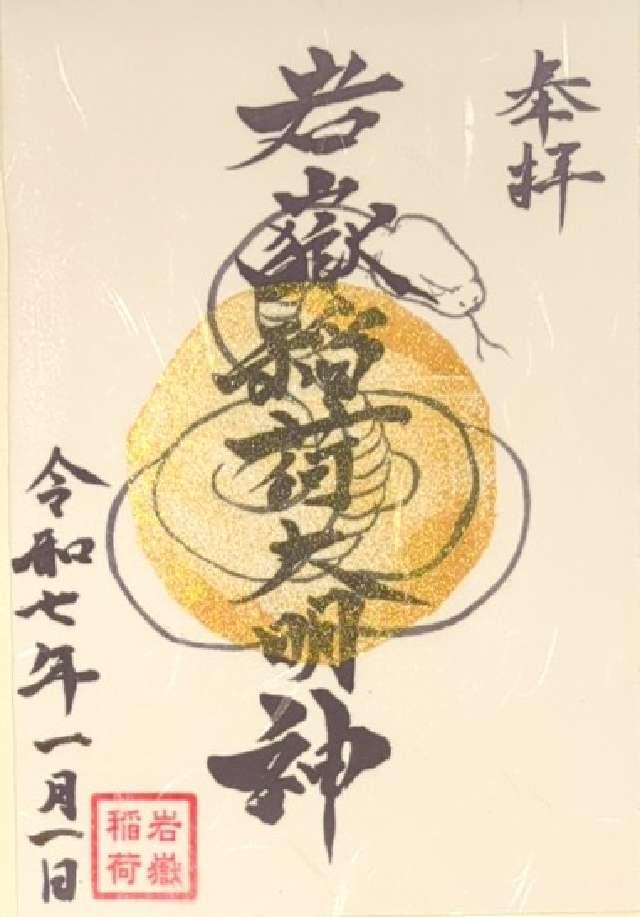 奉拝
岩嶽稲荷大明神
令和七年一月一日
岩嶽
稲荷